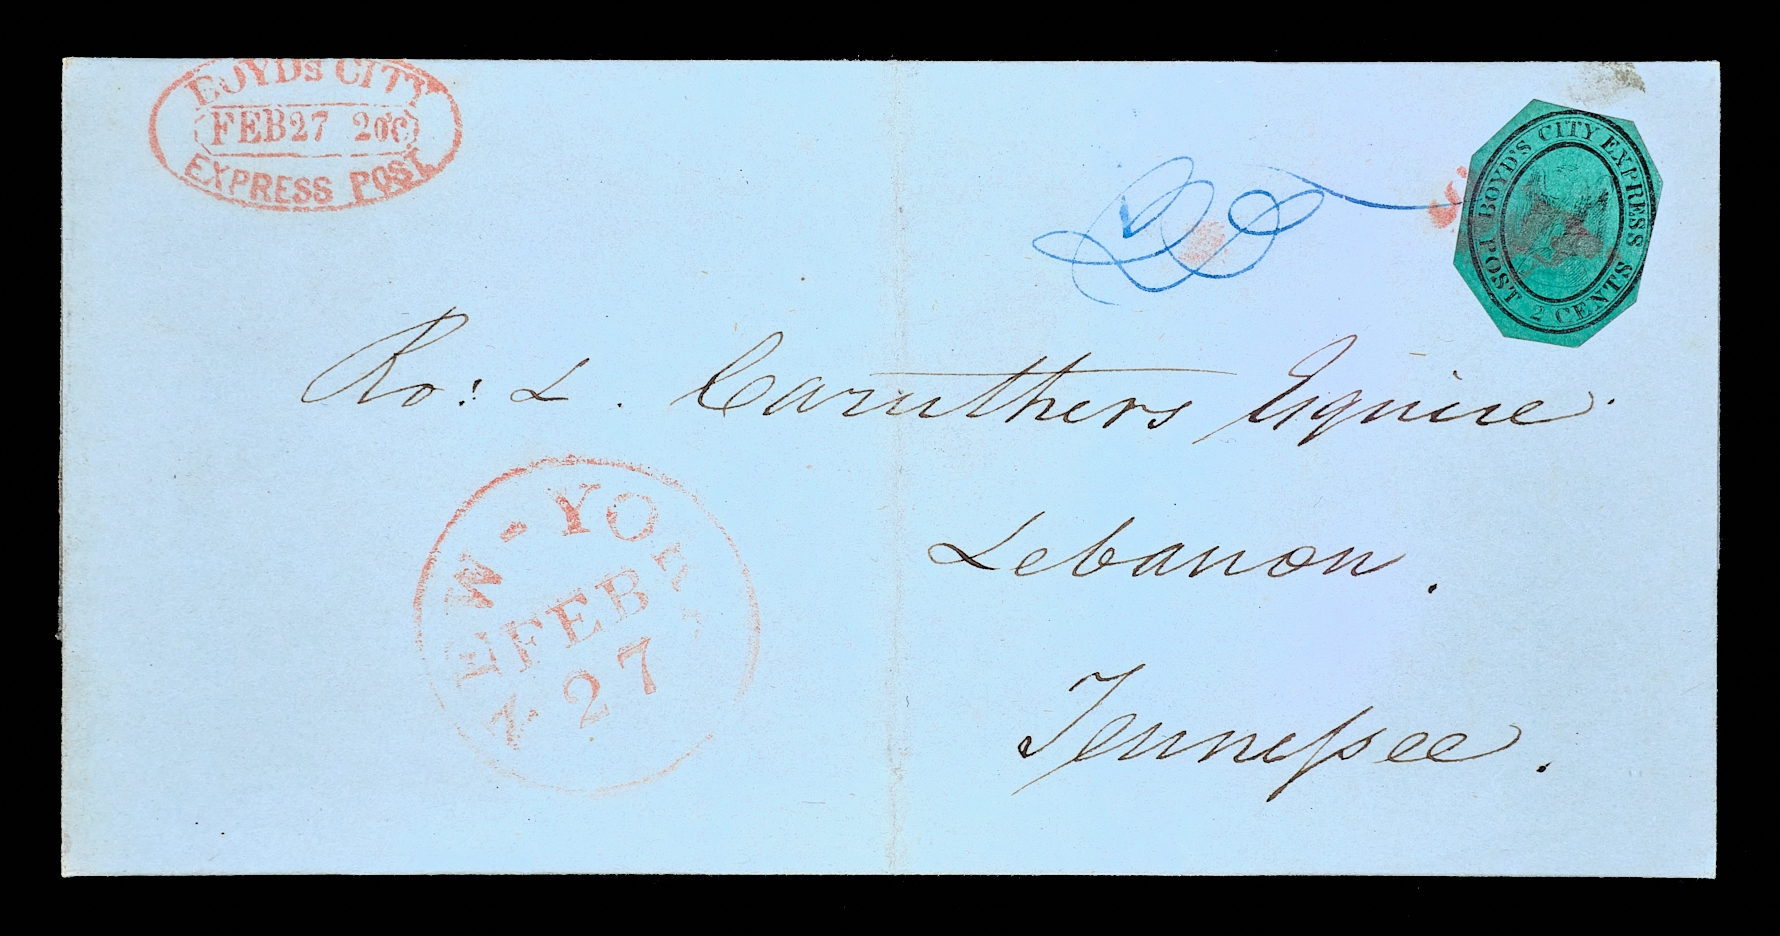 BOYDs CITY
FEB 27 20'C
EXPRESS POST
BOYD'S CITY EXPRESS POST
2 CENTS
Ro: L. Caruthers Esquire.
Lebanon.
Tennessee.
NEW-YORK
FEB
27